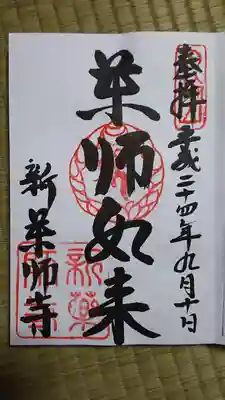 奉拝
平成二十四年九月十日
薬師如来
新薬師寺